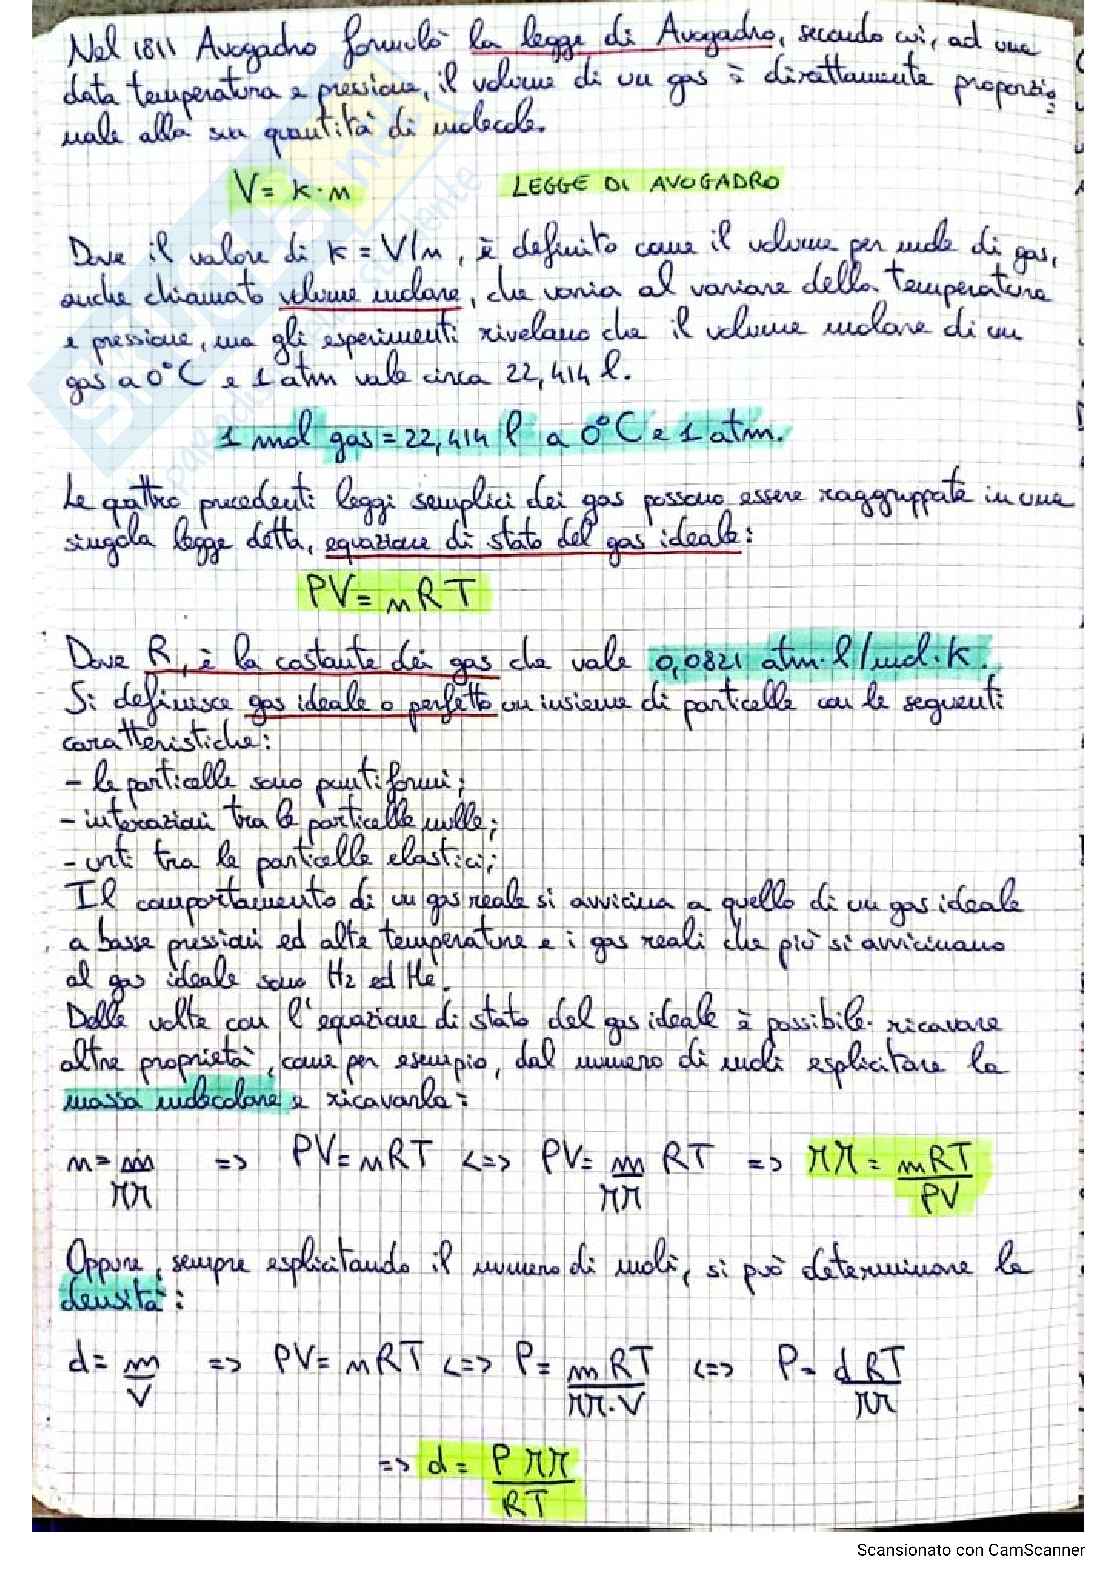 Nel 1811 Avogadro formulò la legge di Avogadro, secondo cui, ad una
data temperatura e pressione, il volume di un gas è direttamente proporzio
nale alla sua quantità di molecole.
V = k · n LEGGE DI AVOGADRO
Dove il valore di k = V/n, è definito come il volume per mole di gas,
anche chiamato volume molare, che varia al variare della temperatura
e pressione, ma gli esperimenti rivelano che il volume molare di un
gas a 0°C e 1 atm vale circa 22,414 l.
1 mol gas = 22,414 l a 0°C e 1 atm.
Le quattro precedenti leggi semplici dei gas possono essere raggruppate in una
singola legge detta, equazione di stato del gas ideale:
PV = nRT
Dove R, è la costante dei gas che vale 0,0821 atm·l/mol·K.
Si definisce gas ideale o perfetto un insieme di particelle con le seguenti
caratteristiche:
- le particelle sono puntiformi;
- interazioni tra le particelle nulle;
- urti tra le particelle elastici;
Il comportamento di un gas reale si avvicina a quello di un gas ideale
a basse pressioni ed alte temperature e i gas reali che più si avvicinano
al gas ideale sono H2 ed He.
Delle volte con l'equazione di stato del gas ideale è possibile ricavare
altre proprietà, come per esempio, dal numero di moli esplicitare la
massa molecolare e ricavarla:
n = m/MM => PV = nRT <=> PV = m/MM RT => MM = mRT/PV
Oppure, sempre esplicitando il numero di moli, si può determinare la
densità:
d = m/V => PV = nRT <=> P = mRT/MM·V <=> P = dRT/MM
=> d = P MM/RT
Scansionato con CamScanner